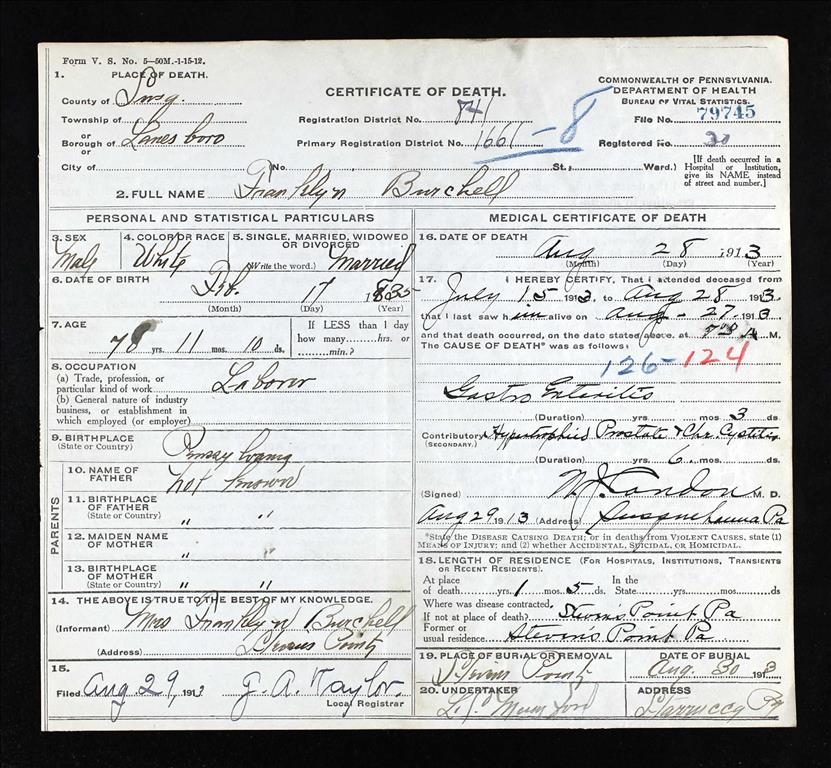 Form V. S. No. 5—50M.-1-15-12.
1. PLACE OF DEATH.
County of Susq.
Township of
or
Borough of Lanesboro
or
City of
CERTIFICATE OF DEATH.
Registration District No. 841
Primary Registration District No. 1661-8
No. St., Ward.)
COMMONWEALTH OF PENNSYLVANIA.
DEPARTMENT OF HEALTH
BUREAU OF VITAL STATISTICS.
File No. 79745
Registered No. 30
[If death occurred in a Hospital or Institution, give its NAME instead of street and number.]
2. FULL NAME Franklyn Burchell
PERSONAL AND STATISTICAL PARTICULARS
3. SEX
Male
4. COLOR OR RACE
White
5. SINGLE, MARRIED, WIDOWED OR DIVORCED
(Write the word.) Married
6. DATE OF BIRTH
Feb. 17 1835
(Month) (Day) (Year)
7. AGE
78 yrs. 11 mos. 10 ds.
If LESS than 1 day
how many hrs. or
min.?
8. OCCUPATION
(a) Trade, profession, or
particular kind of work Laborer
(b) General nature of industry
business, or establishment in
which employed (or employer)
9. BIRTHPLACE
(State or Country) Pennsylvania
PARENTS
10. NAME OF
FATHER not known
11. BIRTHPLACE
OF FATHER
(State or Country) " "
12. MAIDEN NAME
OF MOTHER "
13. BIRTHPLACE
OF MOTHER
(State or Country) " "
14. THE ABOVE IS TRUE TO THE BEST OF MY KNOWLEDGE.
(Informant) Mrs Franklyn Burchell
(Address) Stevens Point
15.
Filed Aug 29, 1913 J. A. Taylor.
Local Registrar
MEDICAL CERTIFICATE OF DEATH
16. DATE OF DEATH
Aug 28 1913
(Month) (Day) (Year)
17. I HEREBY CERTIFY, That I attended deceased from
July 15 1913 to Aug 28 1913.
that I last saw him alive on Aug - 27 1913
and that death occurred, on the date stated above, at M.
The CAUSE OF DEATH* was as follows:
126-124
Gastro Enteritis
(Duration) yrs. mos 3 ds.
Contributory Hypertrophied Prostate & Chr. Cystitis
(SECONDARY.)
(Duration) yrs. 6 mos. ds.
(Signed) Condon M. D.
Aug 29 1913 (Address) Susquehanna Pa
*State the DISEASE CAUSING DEATH; or in deaths from VIOLENT CAUSES, state (1) MEANS OF INJURY; and (2) whether ACCIDENTAL, SUICIDAL, or HOMICIDAL.
18. LENGTH OF RESIDENCE (FOR HOSPITALS, INSTITUTIONS, TRANSIENTS
OR RECENT RESIDENTS).
At place
of death yrs. 1 mos. 5 ds.
In the
State yrs. mos. ds.
Where was disease contracted,
If not at place of death? Stevens Point Pa
Former or
usual residence Stevens Point Pa
19. PLACE OF BURIAL OR REMOVAL
Stevens Point
DATE OF BURIAL
Aug. 30 1913
20. UNDERTAKER
ADDRESS